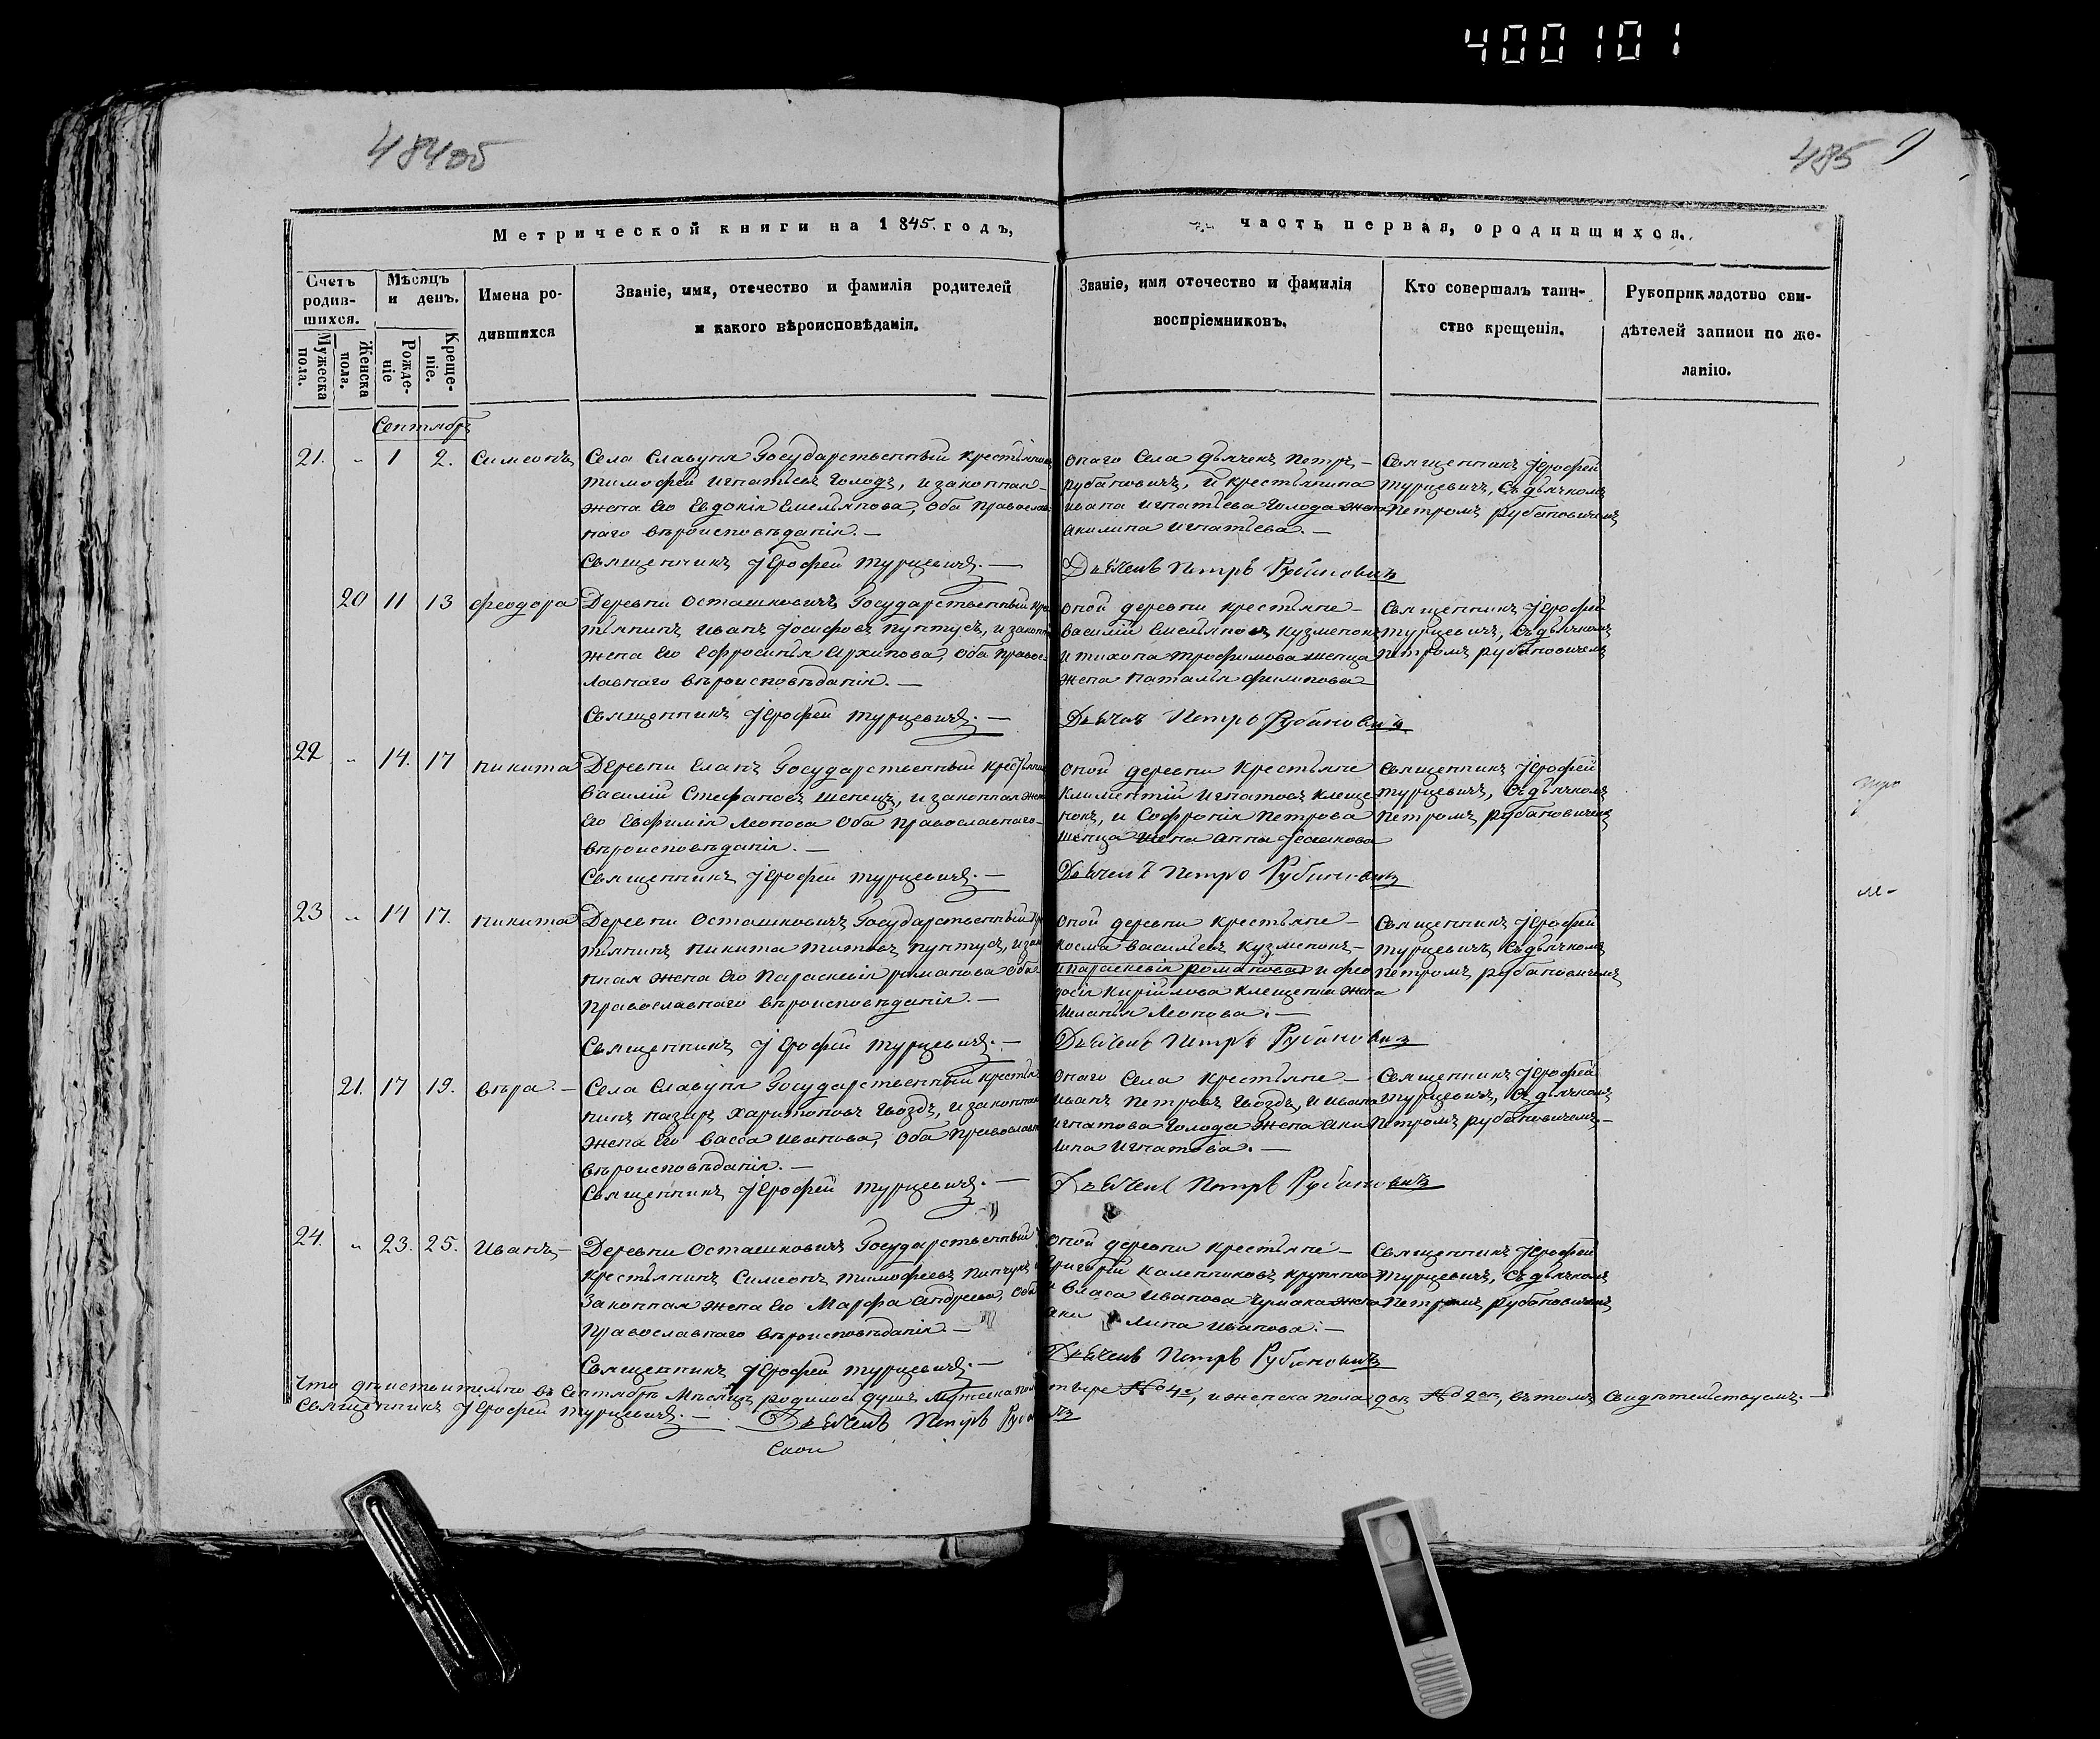 400101
484об
485
Метрической книги на 1845 годъ,
часть первая, о родившихся.
Счетъ родив-шихся.
Мужеска пола.
Женска пола.
Мѣсяцъ и день.
Рожде-ніе
Креще-ніе.
Имена ро-
дившихся
Званіе, имя, отечество и фамилія родителей
и какого вѣроисповѣданія.
Званіе, имя отечество и фамилія
воспріемниковъ.
Кто совершалъ таин-
ство крещенія.
Рукоприкладство сви-
дѣтелей записи по же-
ланію.
Сентябрь
21. „ 1 2. Симеонъ
Села Славуня Государственный крестьянинъ
Тимофей Игнатьевъ Голодъ, и законная
жена его Евдокія Емельянова, оба православ-
наго вѣроисповѣданія.—
Священникъ Іерофей Турцевичъ.—
онаго села дьячекъ Петръ—
Рубановичъ, и крестьянина
Ивана Игнатьева Голода жена
Акилина Игнатьева.—
Дьячекъ Петръ Рубановичъ
Священникъ Іерофей
Турцевичъ, съ дьячкомъ
Петромъ Рубановичемъ
20 11 13 Феодора
Деревни Осташковичъ Государственный крес
тьянинъ Иванъ Іосифовъ Пунтусъ, и законная
жена его Ефросинья Архипова, оба правос-
лавнаго вѣроисповѣданія.—
Священникъ Іерофей Турцевичъ.—
оной деревни крестьяне—
Василій Емельяновъ Кузменокъ
и Тихона Трофимова Шевца
жена Наталья Филипова
Дьячекъ Петръ Рубановичъ
Священникъ Іерофей
Турцевичъ, съ дьячкомъ
Петромъ Рубановичемъ
22 „ 14. 17 Никита
Деревни Еланъ Государственный крестьянинъ
Василій Стефановъ Шевецъ, и законная жена
его Евфимія Леонова оба православнаго
вѣроисповѣданія.—
Священникъ Іерофей Турцевичъ.—
оной деревни крестьяне
Климентій Игнатовъ Клеще
нокъ, и Софронія Петрова
Шевца жена Анна
Дьячекъ Петръ Рубановичъ
Священникъ Іерофей
Турцевичъ, съ дьячкомъ
Петромъ Рубановичемъ
23 „ 14 17. Никита
Деревни Осташковичъ Государственный крес
тьянинъ Никита Титовъ Пунтусъ, и зако
нная жена его Параскевія Романова оба
православнаго вѣроисповѣданія.—
Священникъ Іерофей Турцевичъ.—
оной деревни крестьяне—
Косма Васильевъ Кузменокъ—
и Параскевія Романова и Фео
досія Кирійлова Клещенка жена
Меланья Леонова.—
Дьячекъ Петръ Рубановичъ
Священникъ Іерофей
Турцевичъ, съ дьячкомъ
Петромъ Рубановичемъ
21. 17 19. Вѣра.—
Села Славуня Государственный крестья
нинъ Назаръ Харитоновъ Гвоздъ, и законная
жена его Васса Иванова, оба православн
вѣроисповѣданія.—
Священникъ Іерофей Турцевичъ.—
онаго села крестьяне—
Иванъ Петровъ Гвоздъ, и Ивана
Игнатова Голода жена Аки
лина Игнатова.—
Дьячекъ Петръ Рубановичъ
Священникъ Іерофей
Турцевичъ, съ дьячкомъ
Петромъ Рубановичемъ.—
24. „ 23. 25. Иванъ—
Деревни Осташковичъ Государственный
крестьянинъ Симеонъ Тимофеевъ Пинчукъ и
законная жена его Марфа Андреева, оба
православнаго вѣроисповѣданія.—
Священникъ Іерофей Турцевичъ.—
оной деревни крестьяне—
Григорій Каленниковъ
и Власа Иванова Чумака жена
Аки лина Иванова.—
Дьячекъ Петръ Рубановичъ
Священникъ Іерофей
Турцевичъ, съ дьячкомъ
Петромъ Рубановичемъ
Что дѣйствительно въ Сентябрѣ мѣсяцѣ родилось душъ мужеска пола четыре №4е, и женска пола двѣ №2вѣ, въ томъ свидѣтельствуемъ.—
Священникъ Іерофей Турцевичъ.— Дьячекъ Петръ Рубановичъ